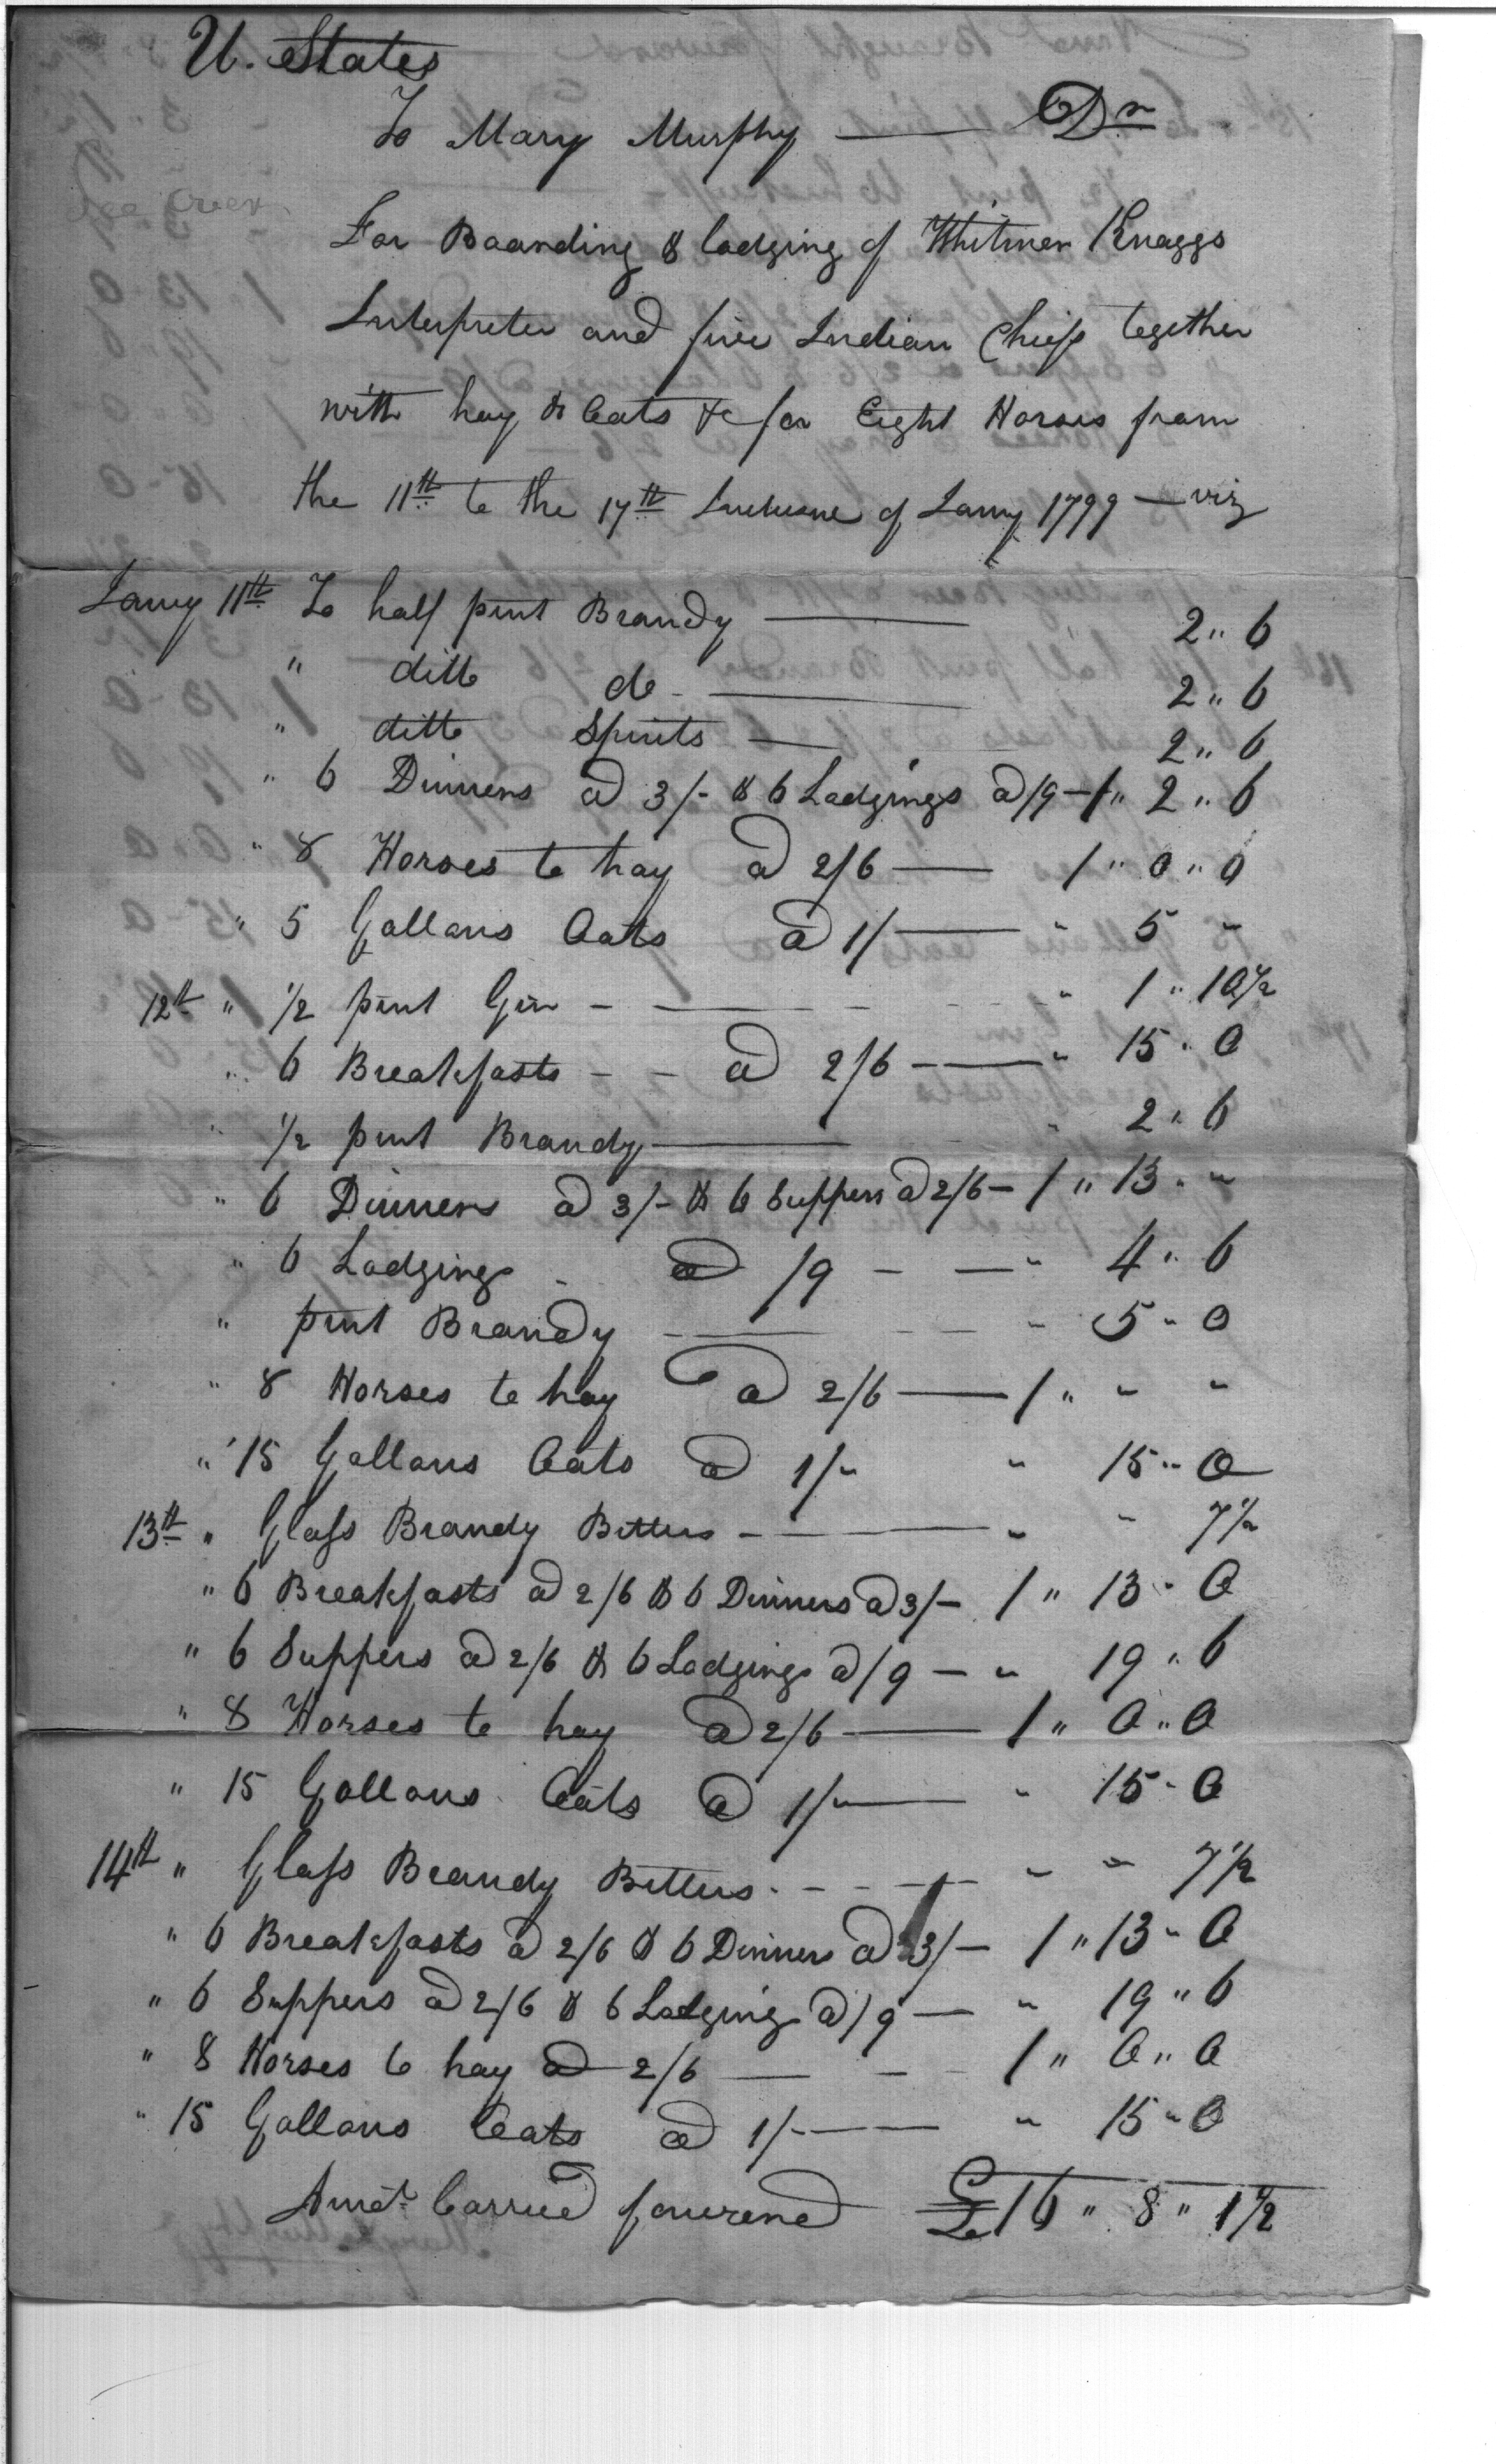 U. States
To Mary Murphy — Dr
For Boarding & lodging of Whitmer Knaggs
Interpreter and five Indian Chiefs together
with hay & Oats &c for Eight Horses from
the 11th to the 17th Inclusive of Jany 1799 — viz
Jany 11th To half pint Brandy — 2 " 6
" ditto do — 2 " 6
" ditto Spirits — 2 " 6
" 6 Dinners @ 3/- & 6 Lodgings @ /9 — 1 " 2 " 6
" 8 Horses to hay @ 2/6 — 1 " 0 " 0
" 5 Gallons Oats @ 1/ — " 5 "
12th " 1/2 pint Gin — " 1 " 10 1/2
" 6 Breakfasts - - @ 2/6 — " 15 " 0
" 1/2 pint Brandy — " 2 " 6
" 6 Dinners @ 3/- & 6 Suppers @ 2/6 — 1 " 13 " "
" 6 Lodgings @ /9 - — " 4 " 6
" pint Brandy — " 5 " 0
" 8 Horses to hay @ 2/6 — 1 " " "
" 15 Gallons Oats @ 1/- " 15 " 0
13th " Glass Brandy Bitters — " " 7 1/2
" 6 Breakfasts @ 2/6 & 6 Dinners @ 3/- 1 " 13 " 0
" 6 Suppers @ 2/6 & 6 Lodgings @ /9 — " 19 " 6
" 8 Horses to hay @ 2/6 — 1 " 0 " 0
" 15 Gallons Oats @ 1/- — " 15 " 0
14th " Glass Brandy Bitters — " " 7 1/2
" 6 Breakfasts @ 2/6 & 6 Dinners @ 3/- 1 " 13 " 0
" 6 Suppers @ 2/6 & 6 Lodgings @ /9 — " 19 " 6
" 8 Horses to hay @ 2/6 — 1 " 0 " 0
" 15 Gallons Oats @ 1/- — " 15 " 0
Amot Carried forward £16 " 8 " 1 1/2